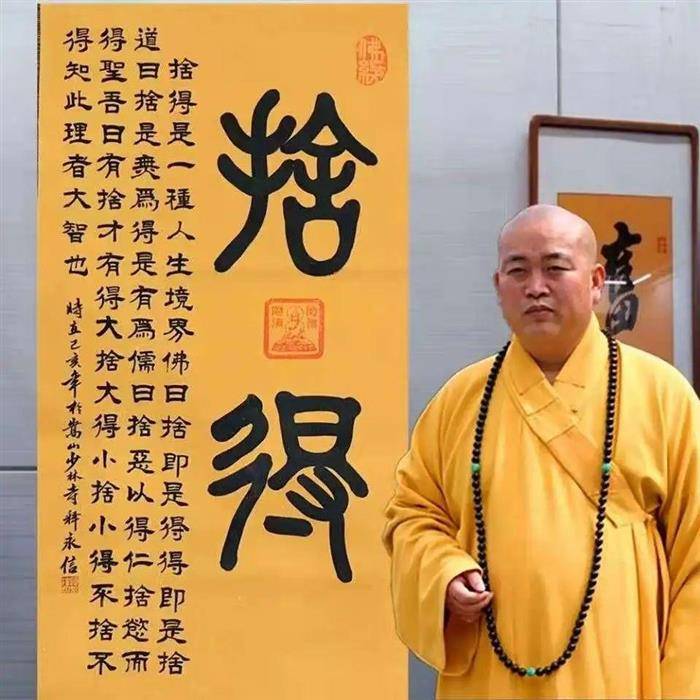 佛緣
捨得
捨得是一種人生境界佛曰捨即是得得即是捨
道曰捨是無爲得是有爲儒曰捨惡以得仁捨慾而
得聖吾曰有捨才有得大捨大得小捨小得不捨不
得知此理者大智也
時在己亥年於嵩山少林寺釋永信